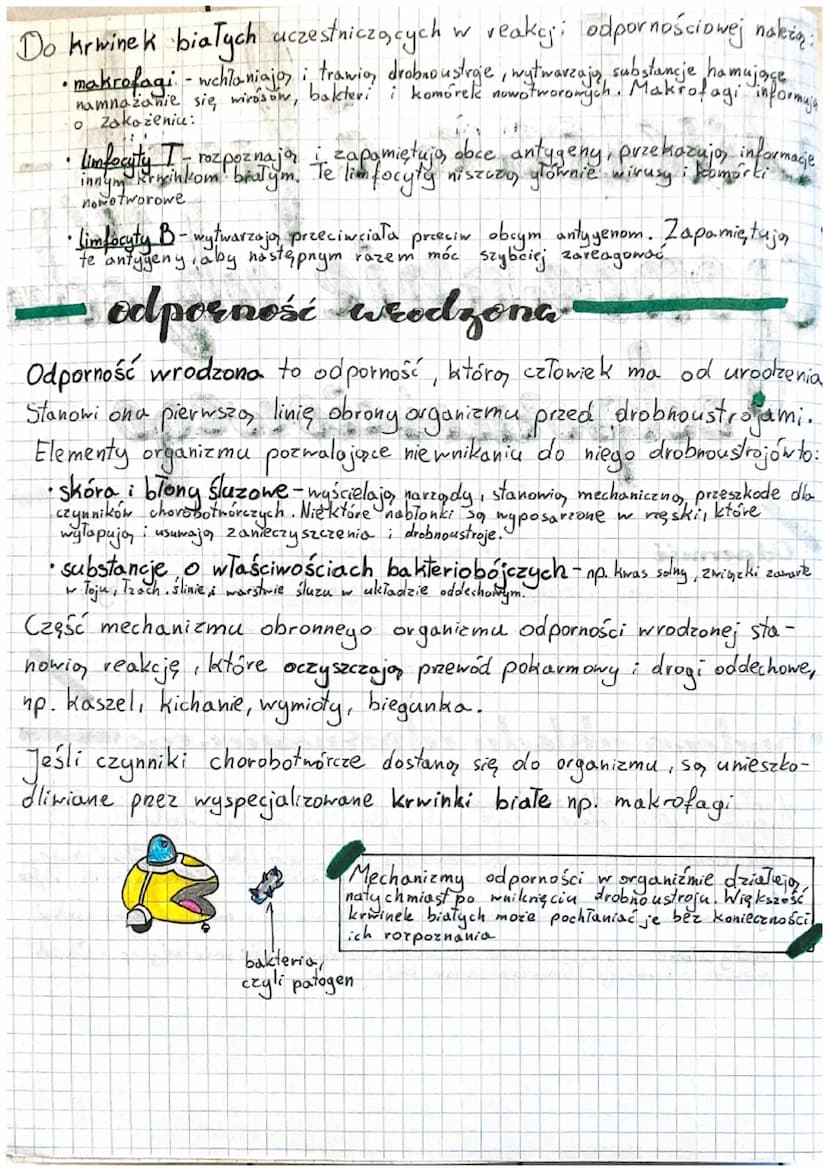 Do krwinek białych uczestniczących w reakcji odpornościowej należą:
• makrofagi - wchłaniają i trawią drobnoustroje, wytwarzają substancje hamujące
namnażanie się wirusów, bakteri i komórek nowotworowych. Makrofagi informują
o zakażeniu:
• limfocyty T - rozpoznają i zapamiętują obce antygeny, przekazują informacje
innym krwinkom białym. Te limfocyty niszczą głównie wirusy i komórki
nowotworowe
• limfocyty B - wytwarzają przeciwciała przeciw obcym antygenom. Zapamiętują
te antygeny, aby następnym razem móc szybciej zareagować
odporność wrodzona
Odporność wrodzona to odporność, którą człowiek ma od urodzenia
Stanowi ona pierwszą linię obrony organizmu przed drobnoustrojami.
Elementy organizmu pozwalające niewnikaniu do niego drobnoustrojów to:
• skóra i błony śluzowe - wyścielają narządy, stanowią mechaniczną przeszkode dla
czynników chorobotwórczych. Niektóre nabłonki są wyposarzone w rzęski, które
wyłapują i usuwają zanieczyszczenia i drobnoustroje.
• substancje o właściwościach bakteriobójczych - np. kwas solny, związki zawarte
w łoju, łzach, ślinie i warstwie śluzu w układzie oddechowym.
Część mechanizmu obronnego organizmu odporności wrodzonej sta-
nowią reakcję, które oczyszczają przewód pokarmowy i drogi oddechowe,
np. kaszel, kichanie, wymioty, biegunka.
Jeśli czynniki chorobotwórcze dostaną się do organizmu, są unieszko-
dliwiane przez wyspecjalizowane krwinki białe np. makrofagi
Mechanizmy odporności w organiźmie działają
natychmiast po wniknięciu drobnoustroju. Większość
krwinek białych może pochłaniać je bez konieczności
ich rozpoznania
bakteria,
czyli patogen